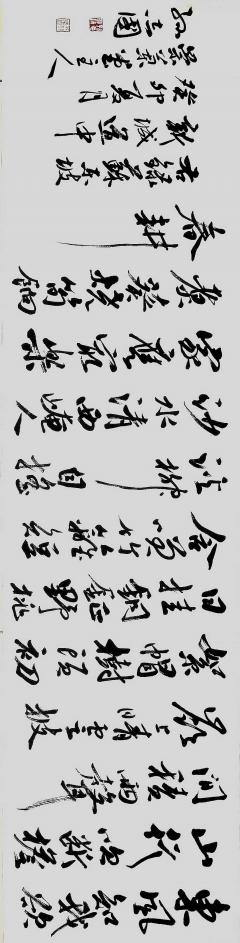 東風知我欲
山行吹斷檐
間積雨聲
嶺上晴雲披
絮帽樹頭初
日挂銅鉦野桃
含笑竹籬短
溪柳自搖
沙水清西崦人
家應最樂
煮芹燒筍餉
春耕
右錄蘇東坡
新城道中
癸卯夏月
堂主人
志國